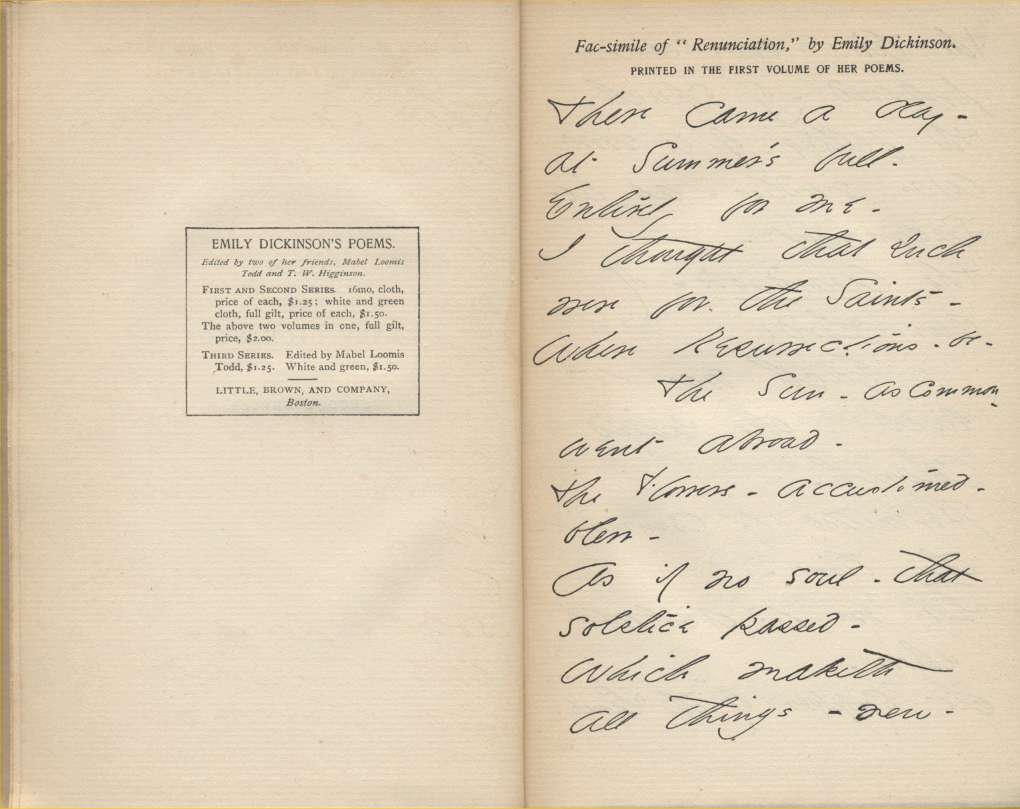 EMILY DICKINSON'S POEMS.
Edited by two of her friends, Mabel Loomis
Todd and T. W. Higginson.
FIRST AND SECOND SERIES. 16mo, cloth,
price of each, $1.25; white and green
cloth, full gilt, price of each, $1.50.
The above two volumes in one, full gilt,
price, $2.00.
THIRD SERIES. Edited by Mabel Loomis
Todd, $1.25. White and green, $1.50.
LITTLE, BROWN, AND COMPANY,
Boston.
Fac-simile of "Renunciation," by Emily Dickinson.
PRINTED IN THE FIRST VOLUME OF HER POEMS.
There came a day -
at Summer's full -
Entirely for me -
I thought that such
were for the Saints -
Where Resurrections - be -
The Sun - as common -
went abroad -
The Flowers - accustomed -
blew -
As if no soul - that
solstice passed -
Which maketh
all things - new -